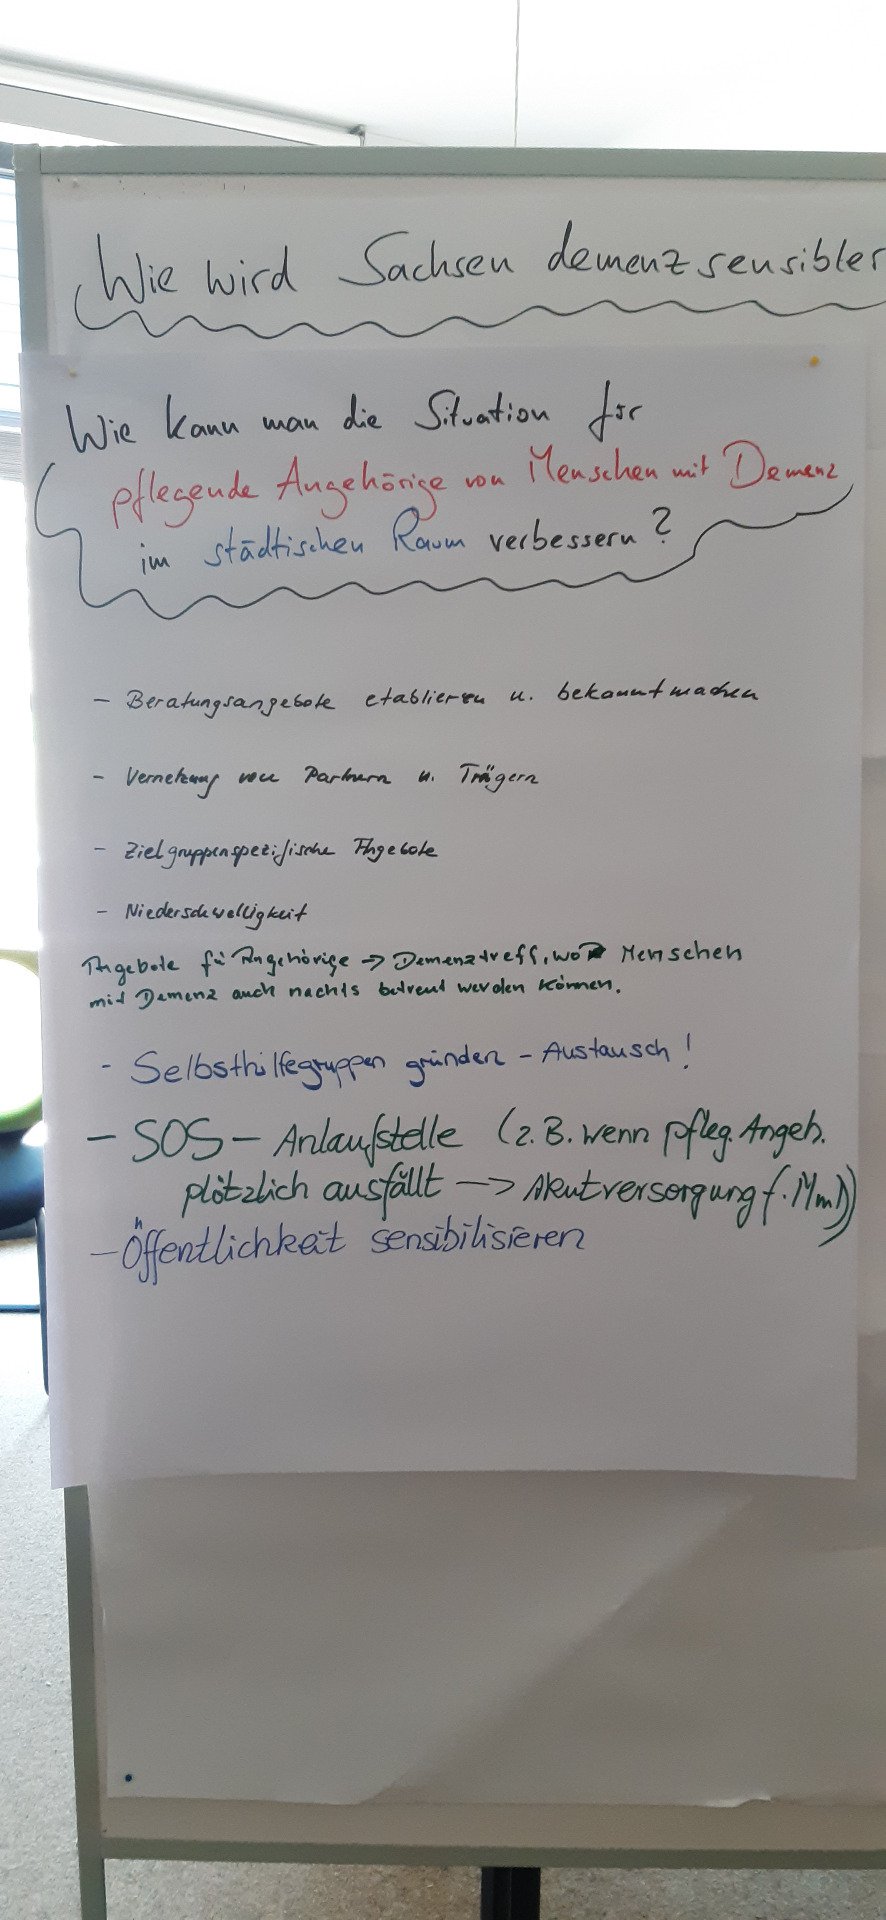 Wie wird Sachsen demenzsensibler
Wie kann man die Situation für
pflegende Angehörige von Menschen mit Demenz
im städtischen Raum verbessern?
- Beratungsangebote etablieren u. bekanntmachen
- Vernetzung von Partnern u. Trägern
- Zielgruppenspezifische Angebote
- Niederschwelligkeit
Angebote fü Angehörige -> Demenztreff, wo Menschen
mit Demenz auch nachts betreut werden können.
- Selbsthilfegruppen gründen - Austausch!
- SOS - Anlaufstelle (z.B. wenn pfleg. Angeh.
plötzlich ausfällt -> Akutversorgung f. MmD)
- Öffentlichkeit sensibilisieren